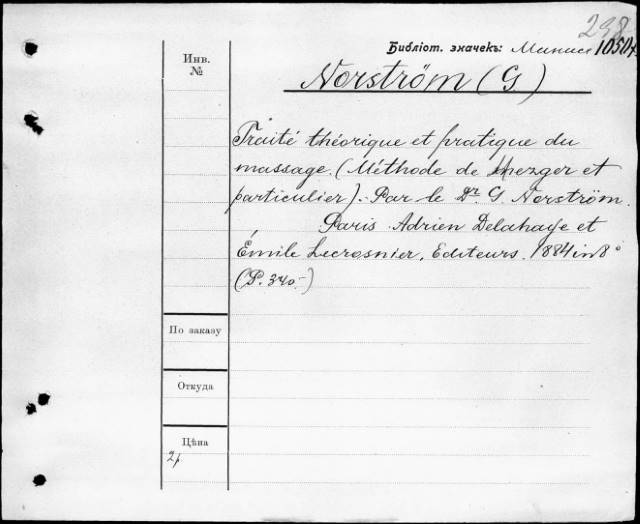 238
Библіот. значекъ: 10504
Инв.
№
Norström (G)
Traité théorique et pratique du
massage. (Méthode de Mezger et
particulier). Par le Dr G Norström.
Paris Adrien Delahaye et
Émile Lecrosnier, Editeurs. 1884 in 8°
(P. 340.)
По заказу
Откуда
Цѣна
2р